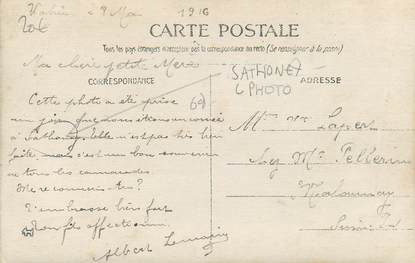 29 Mai 1916
20€
CARTE POSTALE
Tous les pays étrangers n'acceptent pas la correspondance au recto (Se renseigner à la poste)
Ma chère petite Mère
CORRESPONDANCE
ADRESSE
SATHONAY
6 PHOTO
69
Cette photo a été prise
un jour que nous étions
à Sathonay, elle n'est pas très bien
faite mais c'est un bon souvenir
de tous les camarades
Me reconnais-tu?
T'embrasse bien fort
Ton fils affectionné
Albert
Mme
chez Mr Pellerin